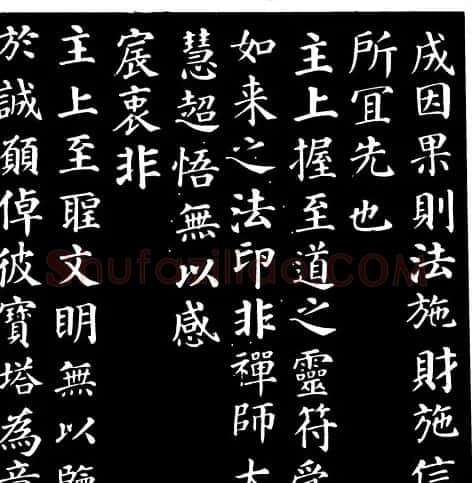 成因果則法施財施信
所冝先也
主上握至道之靈符受
如来之法印非禪師大
慧超悟無以感
宸衷非
主上至聖文眀無以
於誠願倬彼寶塔為章
Shufaziliao.COM